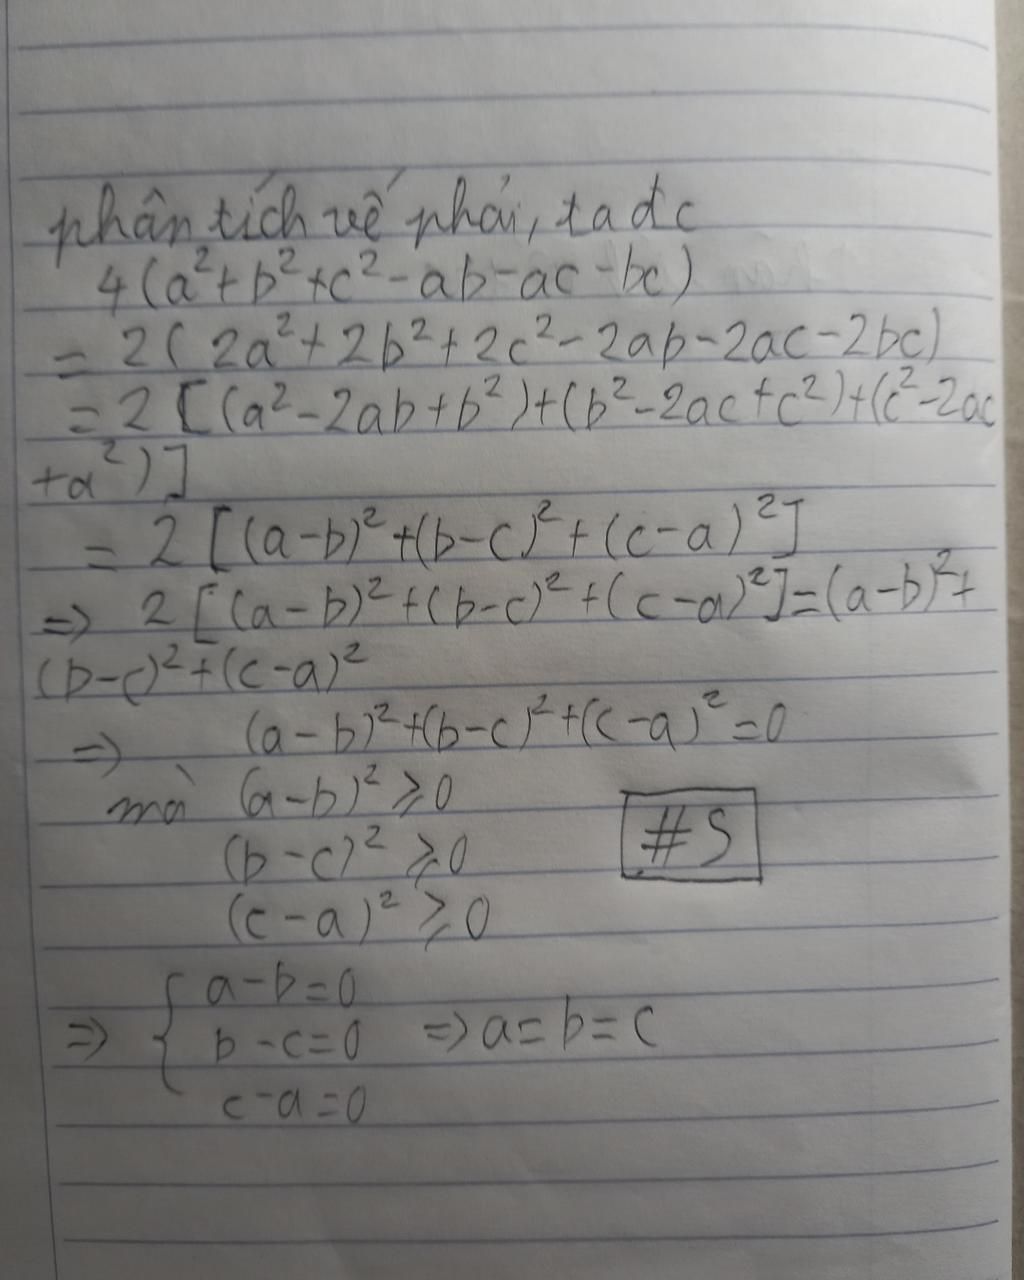 phân tích vế phải, ta đc
4(a²+b²+c²-ab-ac-bc)
= 2(2a²+2b²+2c²-2ab-2ac-2bc)
= 2[(a²-2ab+b²)+(b²-2ac+c²)+(c²-2ac
+a²)]
= 2[(a-b)²+(b-c)²+(c-a)²]
=> 2[(a-b)²+(b-c)²+(c-a)²]=(a-b)²+
(b-c)²+(c-a)²
=> (a-b)²+(b-c)²+(c-a)²=0
mà (a-b)²⩾0
(b-c)²⩾0
#S
(c-a)²⩾0
a-b=0
=> { b-c=0 => a=b=c
c-a=0